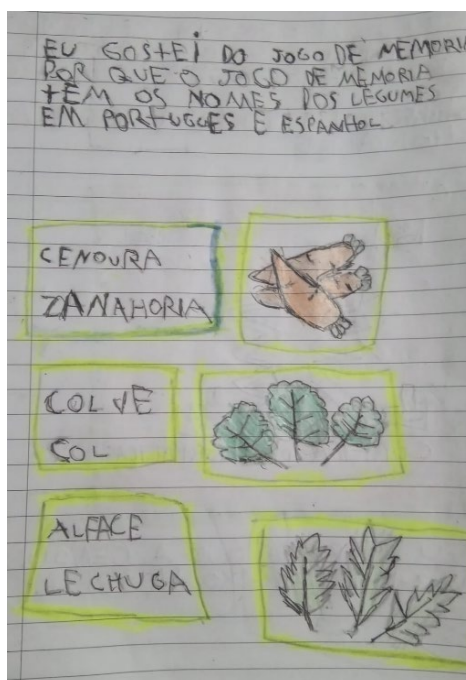 EU GOSTEI DO JOGO DE MEMORIA
POR QUE O JOGO DE MEMORIA
TEM OS NOMES DOS LEGUMES
EM PORTUGUES E ESPANHOL
CENOURA
ZANAHORIA
COLVE
COL
ALFACE
LECHUGA